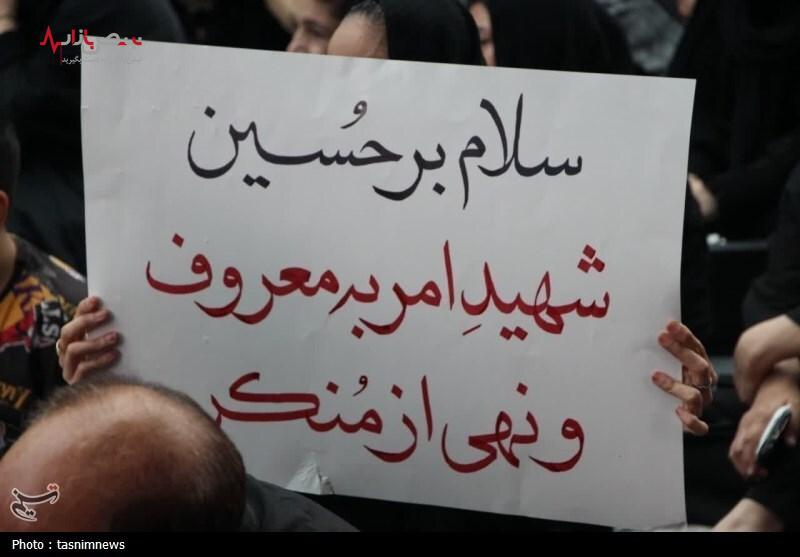 سلام بر حُسین
شهیدِ امر به معروف
و نهی از مُنکر
تسنیم
Photo : tasnimnews